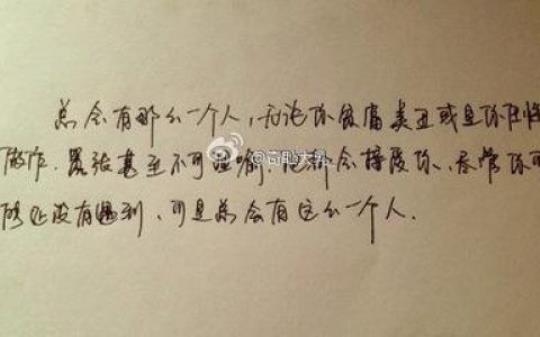 总会有那么一个人,无论你贫富美丑或是你任性
做作.嚣张甚至不可理喻.他都会接受你、尽管你可
能还没有遇到、可是总会有这么一个人.
@奇趣大